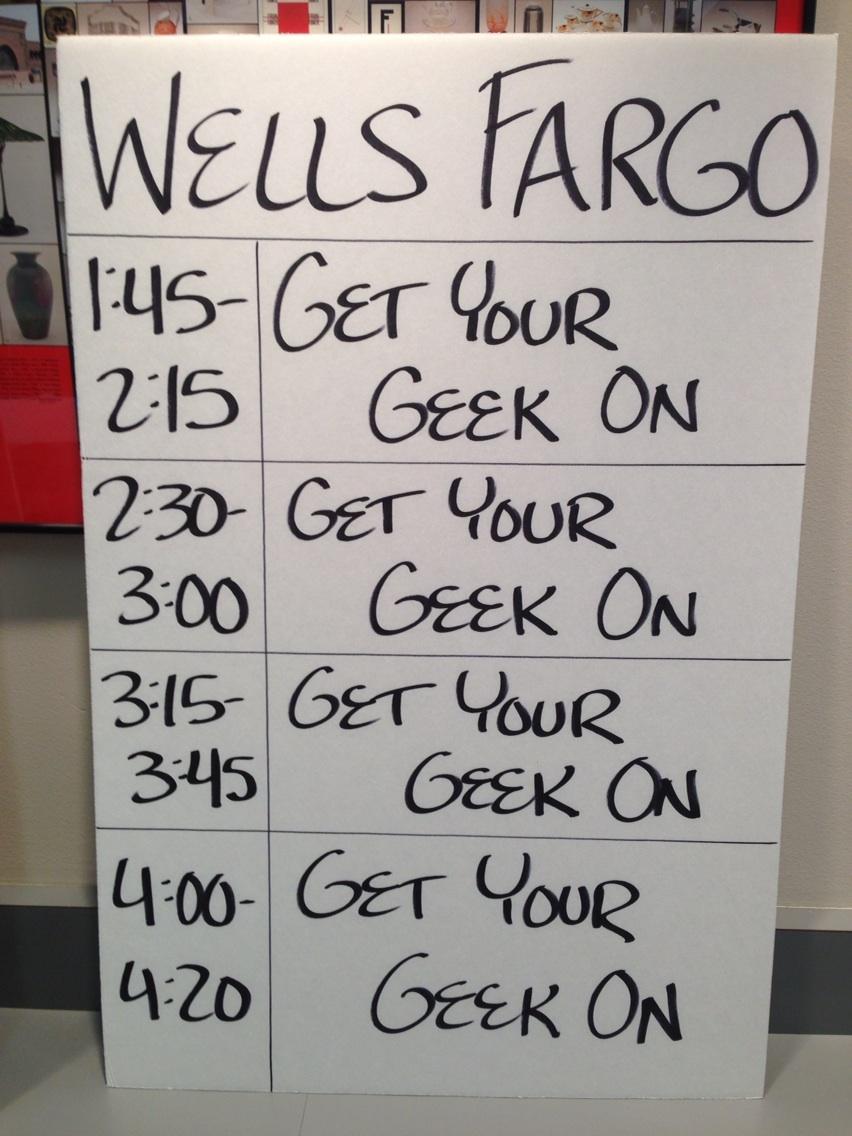 WELLS FARGO
1:45-
2:15
GET YOUR
GEEK ON
2:30-
3:00
GET YOUR
GEEK ON
3:15-
3:45
GET YOUR
GEEK ON
4:00-
4:20
GET YOUR
GEEK ON